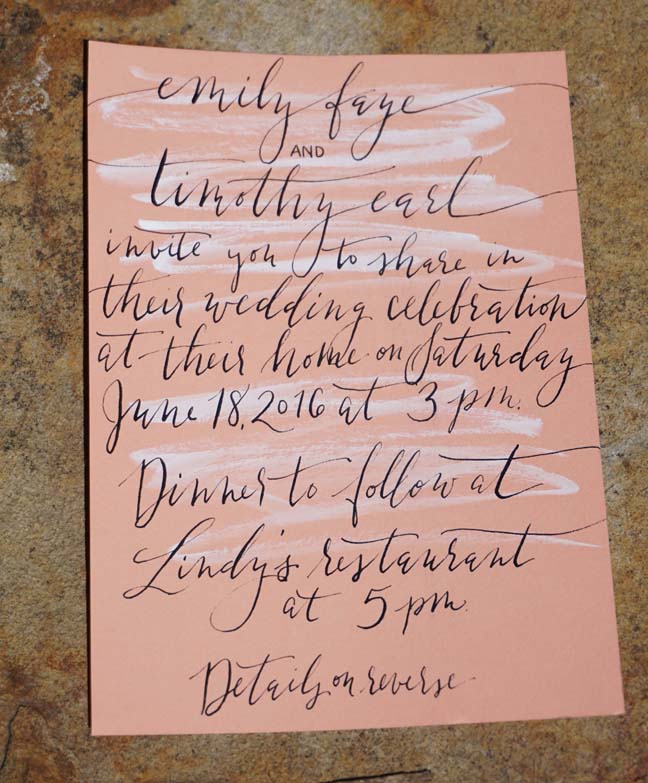 emily faye
AND
timothy earl
invite you to share in
their wedding celebration
at their home on Saturday
June 18, 2016 at 3 pm.
Dinner to follow at
Lindy's restaurant
at 5 pm.
Details on reverse